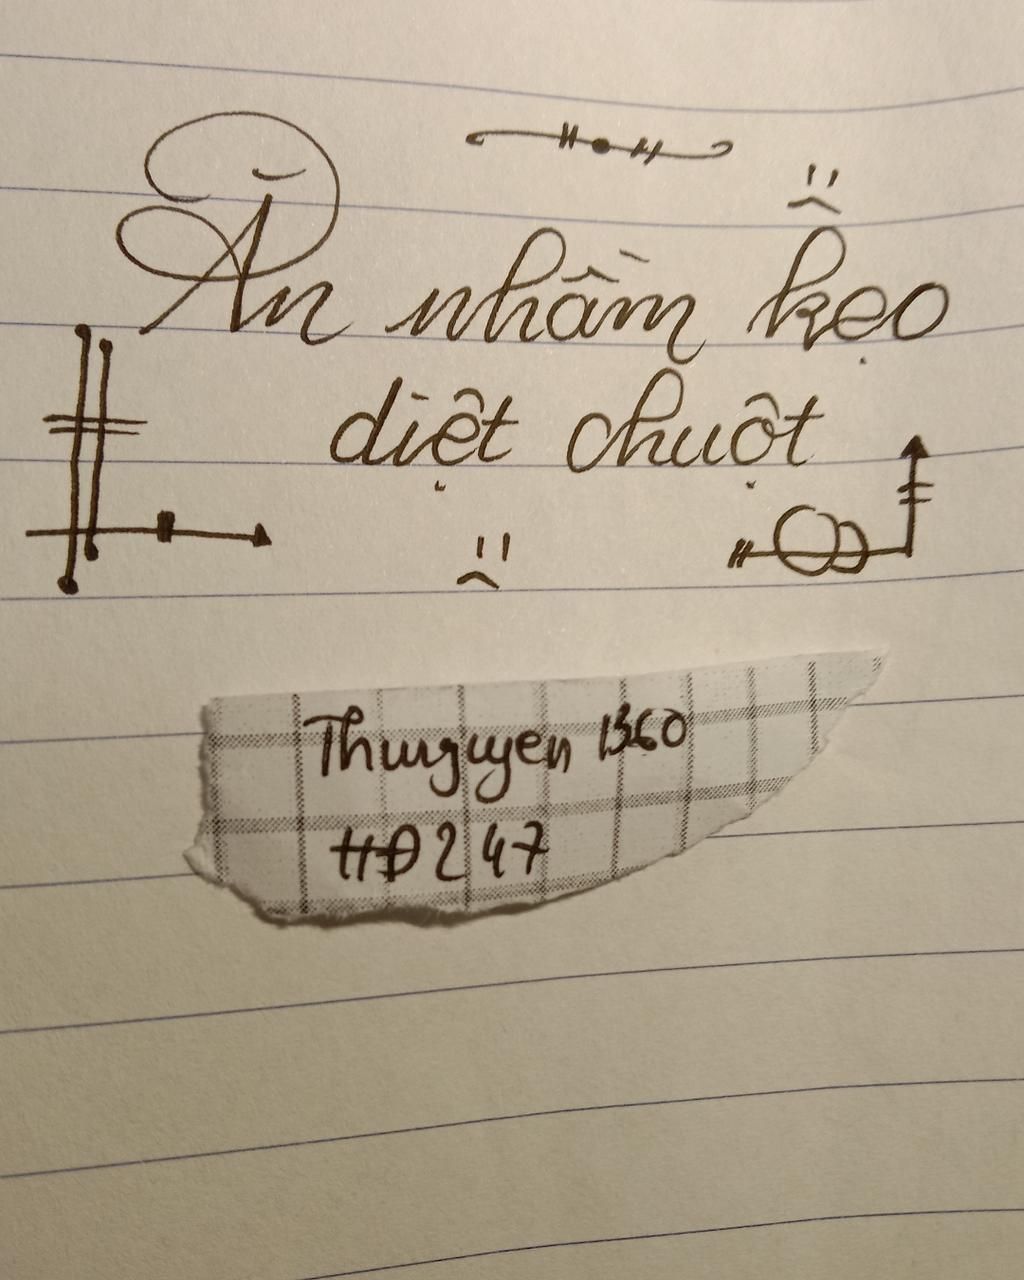 Ăn nhầm kẹo
diệt chuột
Thuyguyen 1360
HĐ247